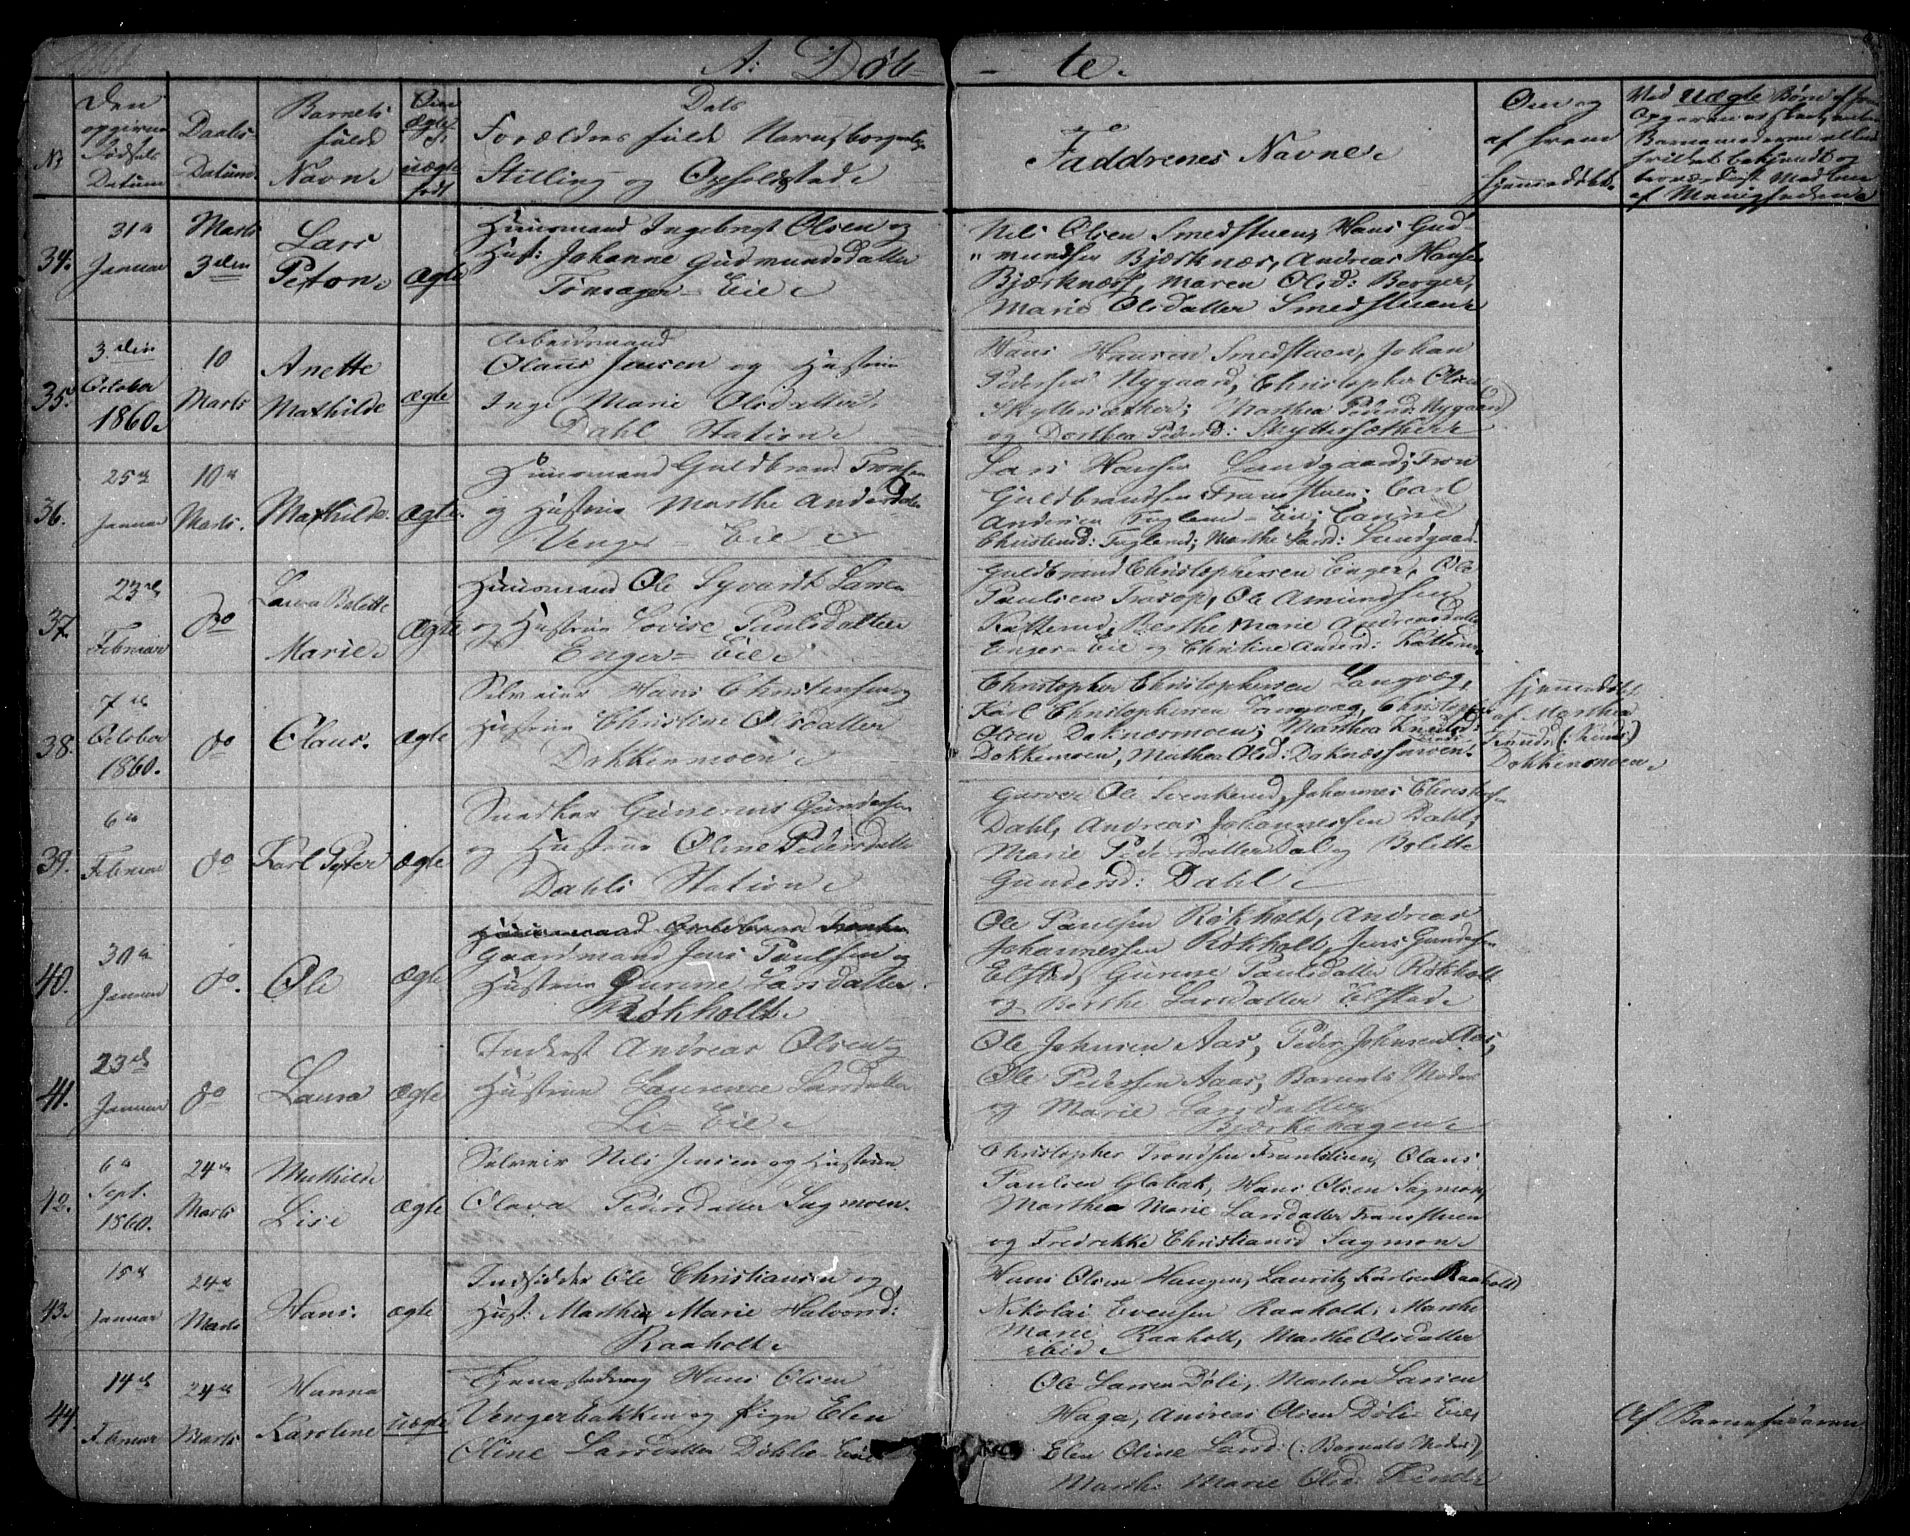 1861
A: Døb-te.
Nr
Den opgivne Fødsels Datum
Daabs-Datum.
Barnets fulde Navn.
Om ægte ell. uægte født
Dets
Forældres fulde Navn, borgerlige
Stilling og Opholdsted.
Faddrenes Navne.
Om og
af hvem
hjemmedøbt.
Ved Uægte Børn af hvem
Opgaven
af Menigheden
34.
31te Januar
Marts 3den
Lars Peter.
Ægte
Huusmand Ingebregt Olsen og
Hust: Johanne Gudmundsdatter
Eie.
Nils Olsen Smedstuen, Hans Gud-
mundsen Bjørknæs, Andreas Hansen
Bjørknæs, Maren Olsd: Berger,
Marie Olsdatter Smedstuen.
35.
3den October 1860.
10 Marts
Anette Mathilde
Ægte
Arbeidsmand
Olaus Jensen og Hustrue
Inge Marie Olsdatter.
Dahl Station.
Hans Hansen Smedstuen, Johan
Pedersen Nygaard, Christopher Olsen
Skyttersæther; Marthea Pedersd: Nygaard
og Dorthea Pedersd: Skyttersæther.
36.
25de Januar
10de Marts.
Mathilde.
Ægte.
Huusmand Guldbrand Tronsen
og Hustrue Marthe Andersdatter
Venger-Eie.
Lars Hansen Lundgaard; Tron
Guldbrandsen Tronsstuen; Carl
Andersen Fuglerud-Eie; Carine
Christensd: Fuglerud; Marthe Larsd: Lundgaard.
37.
23de Februar
do
Laura Bolette Marie.
Ægte
Huusmand Ole Syvardt Larsen
og Hustrue Lovise Paulsdatter
Enger-Eie.
Guldbrand Christophersen Enger, Ole
Paulsen Trarop, Ole Amundsen
Katterud, Berthe Marie Andreasdatter
Enger-Eie og Christine Andersd: Katterud.
38.
7de October 1860.
do
Claus.
Ægte
Selveier Hans Christensen og
Hustrue Christine Olsdatter
Dokkenmoen.
Christopher Christophersen Langvæg,
Karl Christophersen Langvæg, Christopher
Olsen Doknæsmoen; Marthea Knudsd:
Dokkemoen, Mathea Olsd: Doknæssmoen.
Hjemmedøbt
af Marthea
Knudsd:
Dokkenmoen.
39.
6te Februar
do
Karl Peter
Ægte
Snedker Gunerius Gundersen
og Hustrue Oline Pedersdatter
Dahls Station.
Garver Ole Svenkerud, Johannes Christofersen
Dahl, Andreas Johannessen Dahl;
Marie Pedersdatter Dal og Bolette
Gundersd: Dahl.
40.
30te Januar
do.
Ole
Ægte
Gaardmand Jens Paulsen og
Hustrue Gurine Larsdatter
Røkholt.
Ole Paulsen Røkholt, Andreas
Johannessen Røkholt, Jens Gundersen
Elstad, Gurine Paulsdatter Røkholt
og Berthe Larsdatter Elstad.
41.
23de Januar
do
Laura
Ægte
Inderst Andreas Olsen og
Hustrue Laurence Larsdatter
Li-Eie.
Ole Johnsen Aas, Peder Johnsen Aas,
Ole Pedersen Aas, Barnets Moder
og Marie Larsdatter
Bjørkehagen.
42.
6te Sept. 1860.
24de Marts
Mathilde Lise
Ægte
Selveier Nils Jensen og Hustrue
Olava Pedersdatter Sagmoen.
Christopher Trondsen Tronsstuen, Olaus
Paulsen Globak, Hans Olsen Sagmoen,
Marthea Marie Larsdatter Tronsstuen
og Fredrikke Christiansd Sagmoen.
43.
15de Januar
24de Marts
Hans.
Ægte
Indsidder Ole Christiansen og
Hust: Marthea Marie Halvorsd:
Raaholt.
Hans Olsen Haugen, Lauritz Karlsen Raaholt
Nikolai Evensen Raaholt, Marthe
Marie Raaholt, Marthe Olsdatter
ibid.
44.
14de Februar
24de Marts
Hanna Karoline
uægte
Hans Olsen
Vengerbakken og Pige Elen
Oline Larsdatter Døhle-Eie
Ole Larsen Døli, Morten Larsen
Haga, Andreas Olsen Døli-Eie,
Elen Oline Larsd: (: Barnets Moder),
Marthe Marie Olsd:
Af Barnefaderen